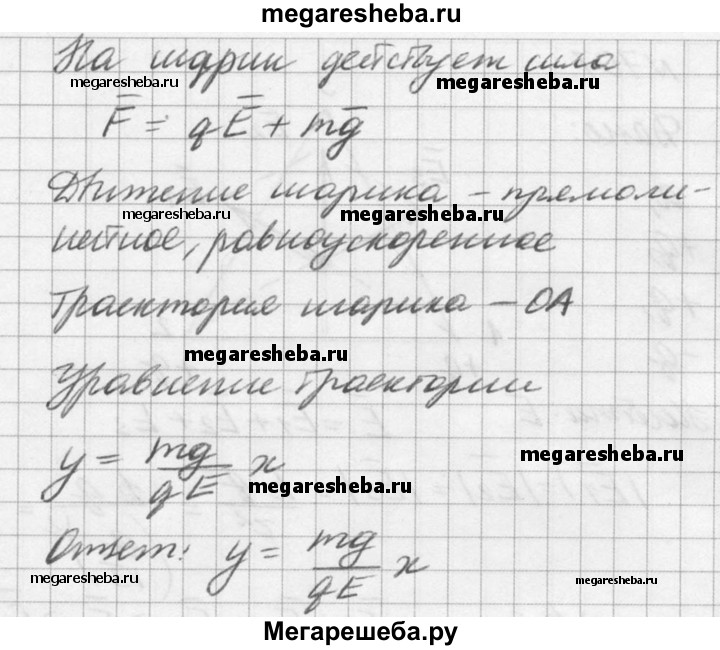 megaresheba.ru
На шарик действует сила
megaresheba.ru megaresheba.ru
F = qE + mg
Движение шарика – прямоли-
megaresheba.ru megaresheba.ru
нейное, равноускоренное
Траектория шарика – OA
megaresheba.ru
Уравнение траектории
megaresheba.ru
y = mg/qE x
megaresheba.ru
Ответ: y = mg/qE x
megaresheba.ru megaresheba.ru
Мегарешеба.ру